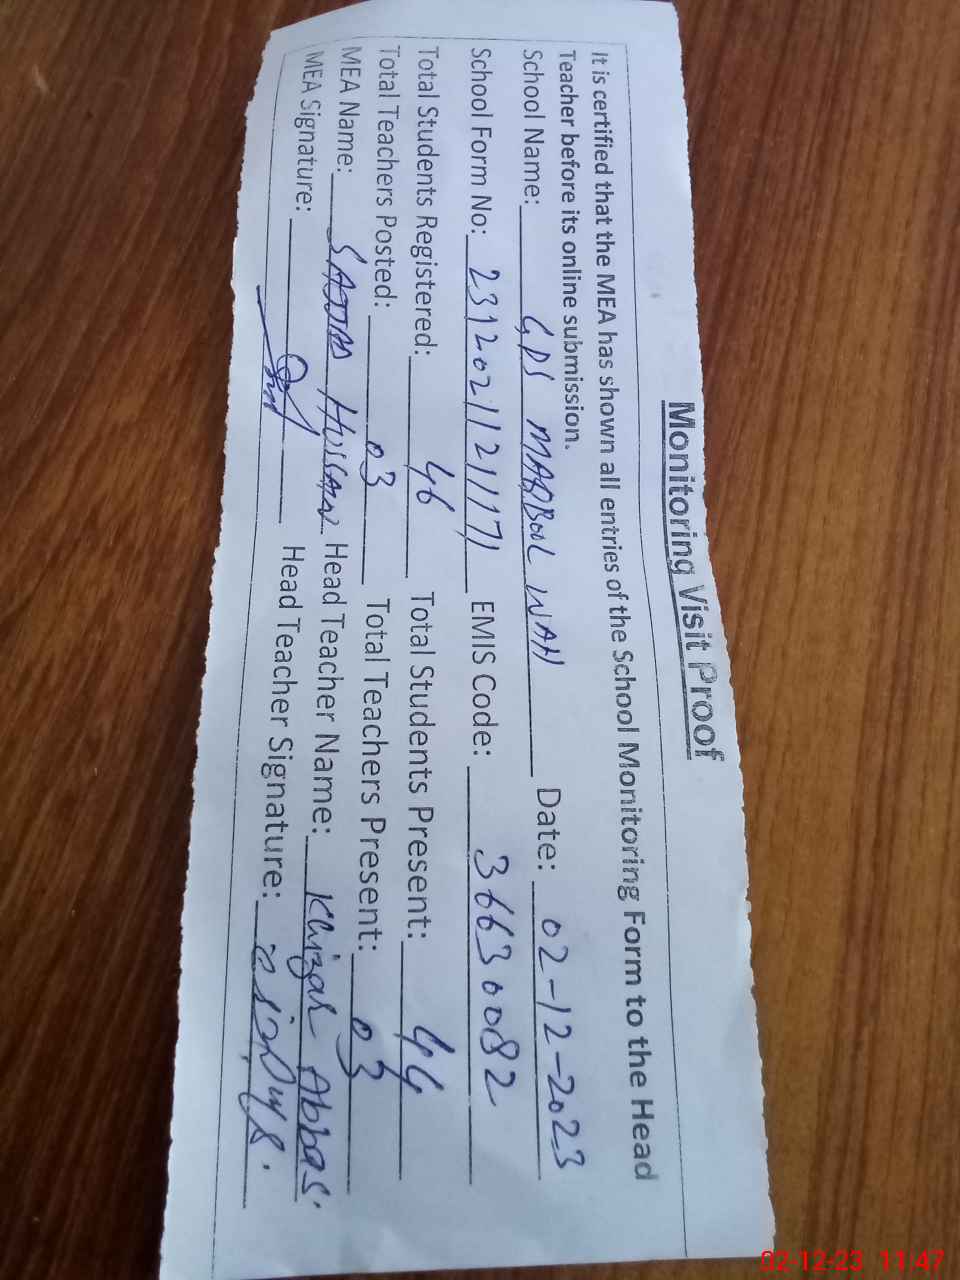 Monitoring Visit Proof
It is certified that the MEA has shown all entries of the School Monitoring Form to the Head
Teacher before its online submission.
School Name: GPS MAQBOOL WAH Date: 02-12-2023
School Form No: 23120211211171 EMIS Code: 36630082
Total Students Registered: 46 Total Students Present: 44
Total Teachers Posted: 03 Total Teachers Present: 03
MEA Name: SADDAM HUSSAIN Head Teacher Name: Khizar Abbas.
MEA Signature: Head Teacher Signature:
02-12-23 11:47